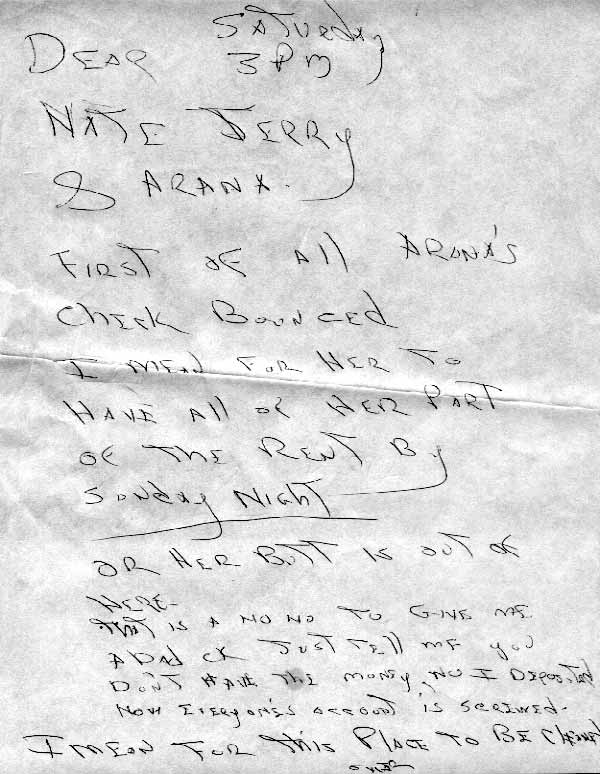 SATURDAY
DEAR 3PM
NATE JERRY
& ARANA.
FIRST OF All ARANA'S
Check Bounced
I MEAN FOR HER TO
HAVE All OF HER PART
OF THE RENT By
SUNday Night
OR HER BUTT IS OUT OF
HERE-
THAT IS A NO NO TO GIVE ME
A BAd CK JUST TEll ME you
DON'T HAVE THE MONEY, NO I DEPOSITED
NOW EVERYONES ACCOUNT IS SCREWED-
I MEAN FOR THIS PLACE TO BE CLEANED
OVER